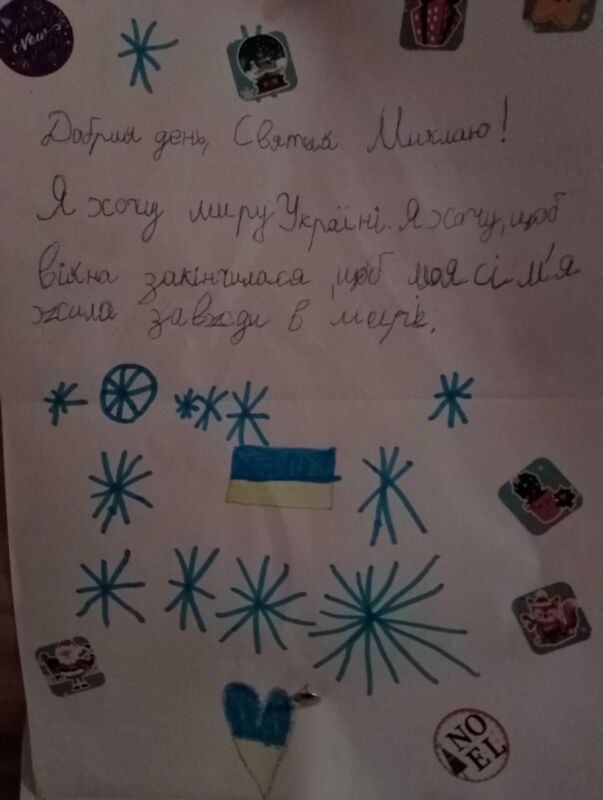 New
Добрий день, Святий Миклаю!
Я хочу миру Україні. Я хочу, щоб
війна закінчилася, щоб моя сім'я
жила завжди в мирі.
NO
EL